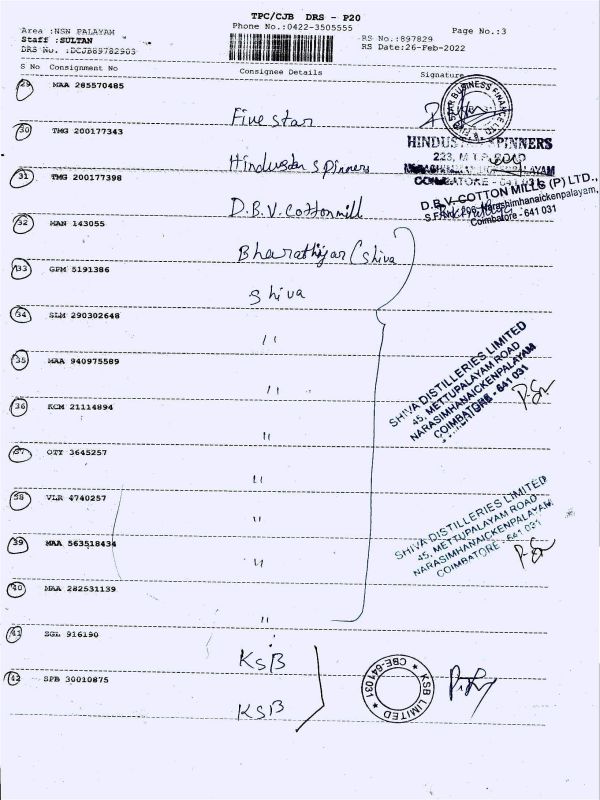 TPC/CJB DRS - P20
Area :NSN PALAYAM
Phone No.:0422-3505555
Page No.:3
Staff :SULTAN
RS No.:897829
DRS No. :DCJB89782903
RS Date:26-Feb-2022
S No Consignment No Consignee Details Signature
29 MAA 285570485
Five star
STAR BUSINESS FINANCE LTD
30 TMG 200177343
Hindustan spinners
HINDUSTAN SPINNERS
223, M.T.P. ROAD
COIMBATORE - 641 031
31 TMG 200177398
D.B.V. Cotton mill
D.B.V. COTTON MILLS (P) LTD.,
Narashimhanaickenpalayam,
Coimbatore - 641 031
32 MAN 143055
(shiva
33 GPM 5191386
shiva
34 SLM 290302648
"
35 MAA 940975589
"
SHIVA DISTILLERIES LIMITED
45, METTUPALAYAM ROAD
NARASIMHANAICKENPALAYAM
COIMBATORE - 641 031
36 KCM 21114894
"
37 OTY 3645257
"
38 VLR 4740257
"
SHIVA DISTILLERIES LIMITED
45, METTUPALAYAM ROAD
NARASIMHANAICKENPALAYAM
COIMBATORE - 641 031
39 MAA 563518434
"
40 MAA 282531139
"
41 SGL 916190
KSB
42 SPB 30010875
KSB
KSB LIMITED
CBE-641031